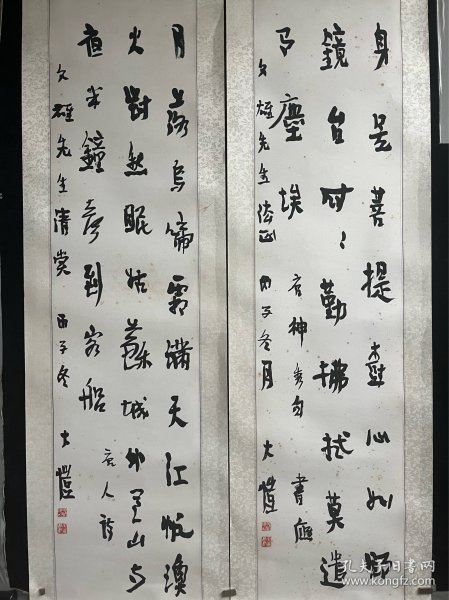 身是菩提樹心如明
鏡台时〻勤拂拭莫遣
有塵埃
唐神秀句
書應
文雄先生法正 丙子冬月 大愷
月落烏啼霜滿天江楓漁
火對愁眠姑蘇城外寒山寺
夜半鐘聲到客船
唐人詩
文雄先生清賞 丙子冬 大愷
孔夫子旧书网
book.kongfz.com